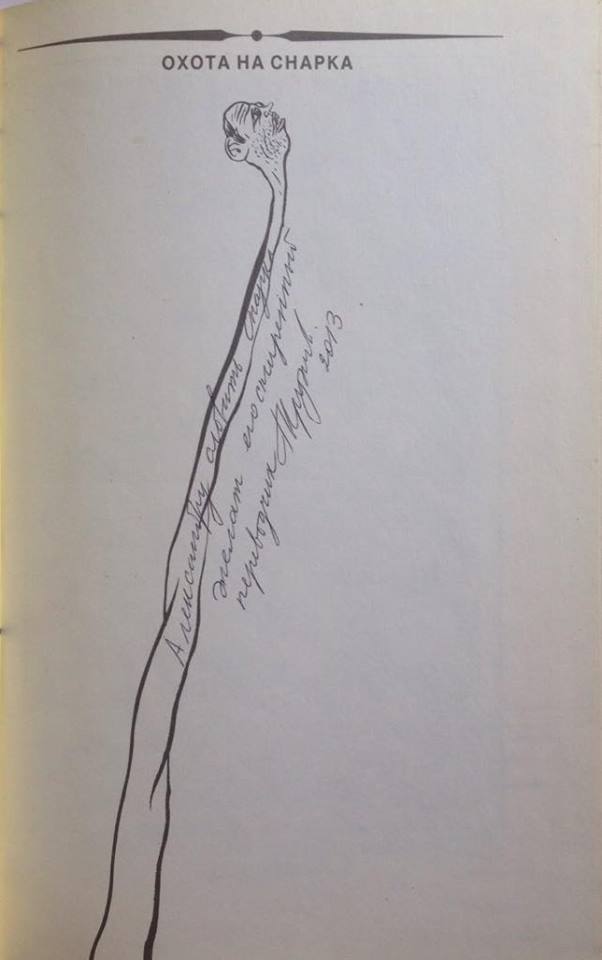 ОХОТА НА СНАРКА
Александру словить Снарка
желает его смиренный
переводчик
2013